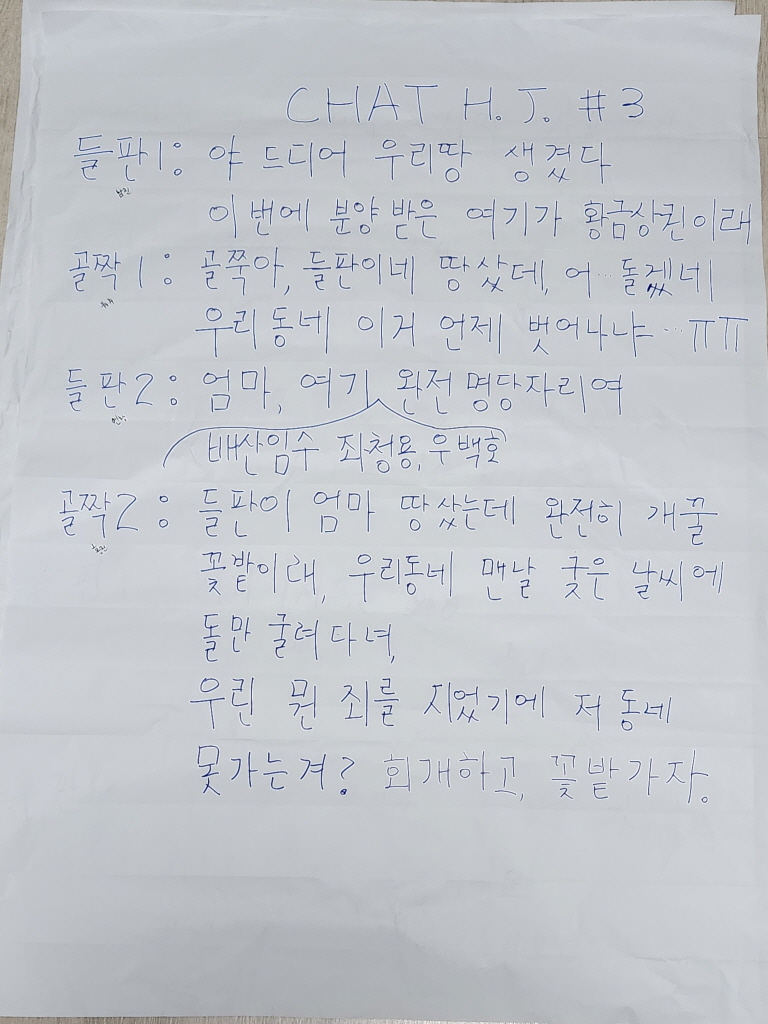 CHAT H.J. #3
들판1: 야 드디어 우리땅 생겼다
이번에 분양 받은 여기가 황금상권이래
골짝1: 골쭉아, 들판이네 땅샀데, 어… 돌겠네
우리동네 이거 언제 벗어나냐…ㅠㅠ
들판2: 엄마, 여기 완전 명당자리여
배산임수 좌청룡, 우백호
골짝2: 들판이 엄마 땅 샀는데 완전히 개꿀
꽃밭이래, 우리동네 맨날 궂은 날씨에
돌만 굴려다녀,
우린 뭔 죄를 지었기에 저 동네
못가는겨? 회개하고, 꽃밭가자.